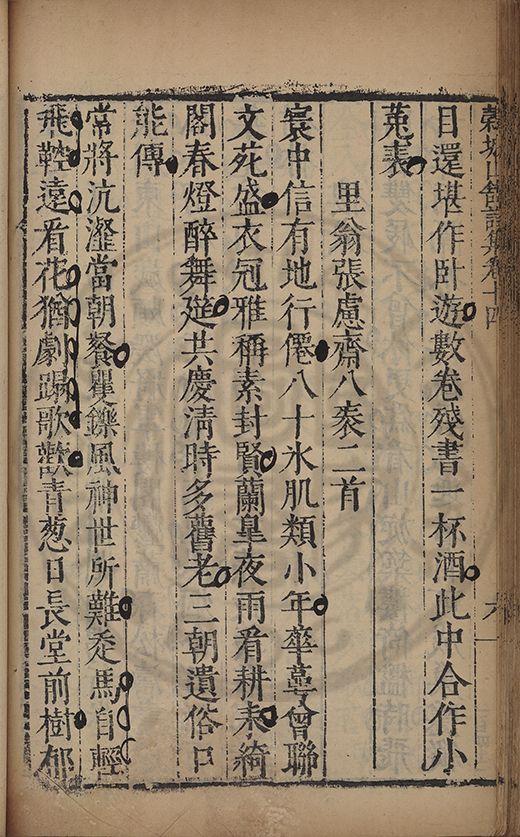 穀城山館詩集卷十四
六
目還堪作卧遊數卷殘書一杯酒此中合作小
菟裘
里翁張慮齋八袠二首
寰中信有地行僊八十氷肌類小年華萼曾聯
文苑盛衣冠雅稱素封賢蘭臯夜雨看耕耒綺
閣春燈醉舞筵共慶清時多舊老三朝遺俗口
能傳
常將沆瀣當朝餐矍鑠風神世所難秃馬自輕
飛鞚遠看花猶劇蹋歌歡青葱日長堂前樹郁